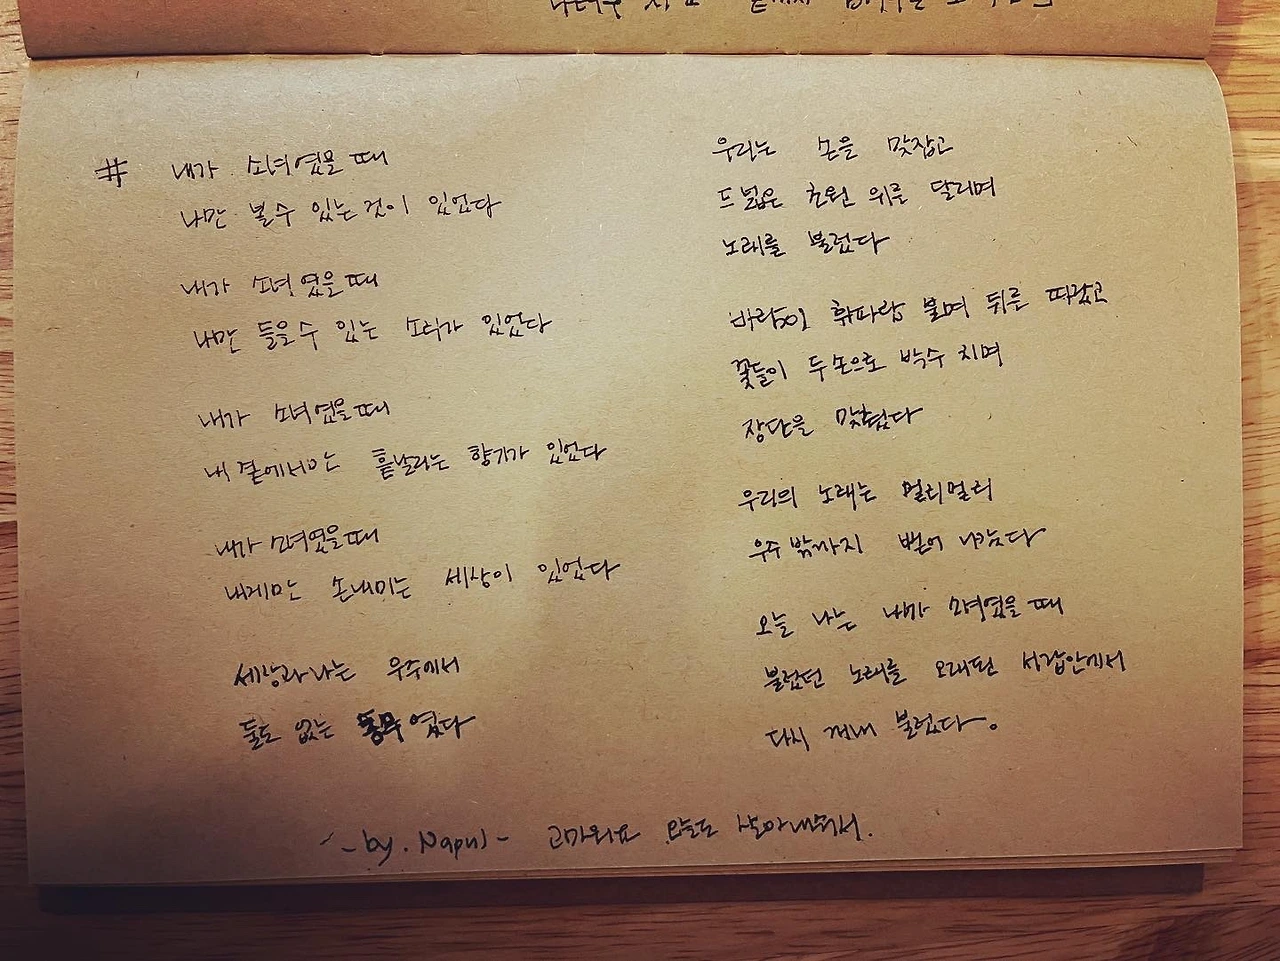 # 내가 소녀였을때
나만 볼수 있는것이 있었다
내가 소녀였을때
나만 들을수 있는 소리가 있었다
내가 소녀였을때
내 곁에서만 흩날리는 향기가 있었다
내가 소녀였을때
내게만 손내미는 세상이 있었다
세상과 나는 우주에서
둘도 없는 동무였다
우리는 손을 맞잡고
드넓은 초원 위를 달리며
노래를 불렀다
바람이 휘파람 불며 뒤를 따랐고
꽃들이 두손으로 박수 치며
장단을 맞췄다
우리의 노래는 멀리멀리
우주 밖까지 뻗어 나갔다
오늘 나는 내가 소녀였을때
불렀던 노래를 오래된 서랍안에서
다시 꺼내 불렀다.
- by. Napul - 고마워요 오늘도 살아내줘서.